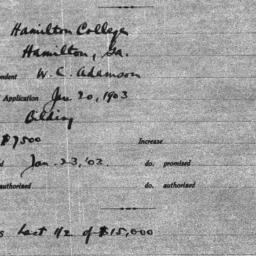 Hamilton College
Hamilton, Ga.
ndent W. C. Adamson
Application Jan 20, 1903
Bilding
$7500 Increase
d Jan. 23, '02. do. promised
authorized do. authorized
s last 1/2 of $15,000